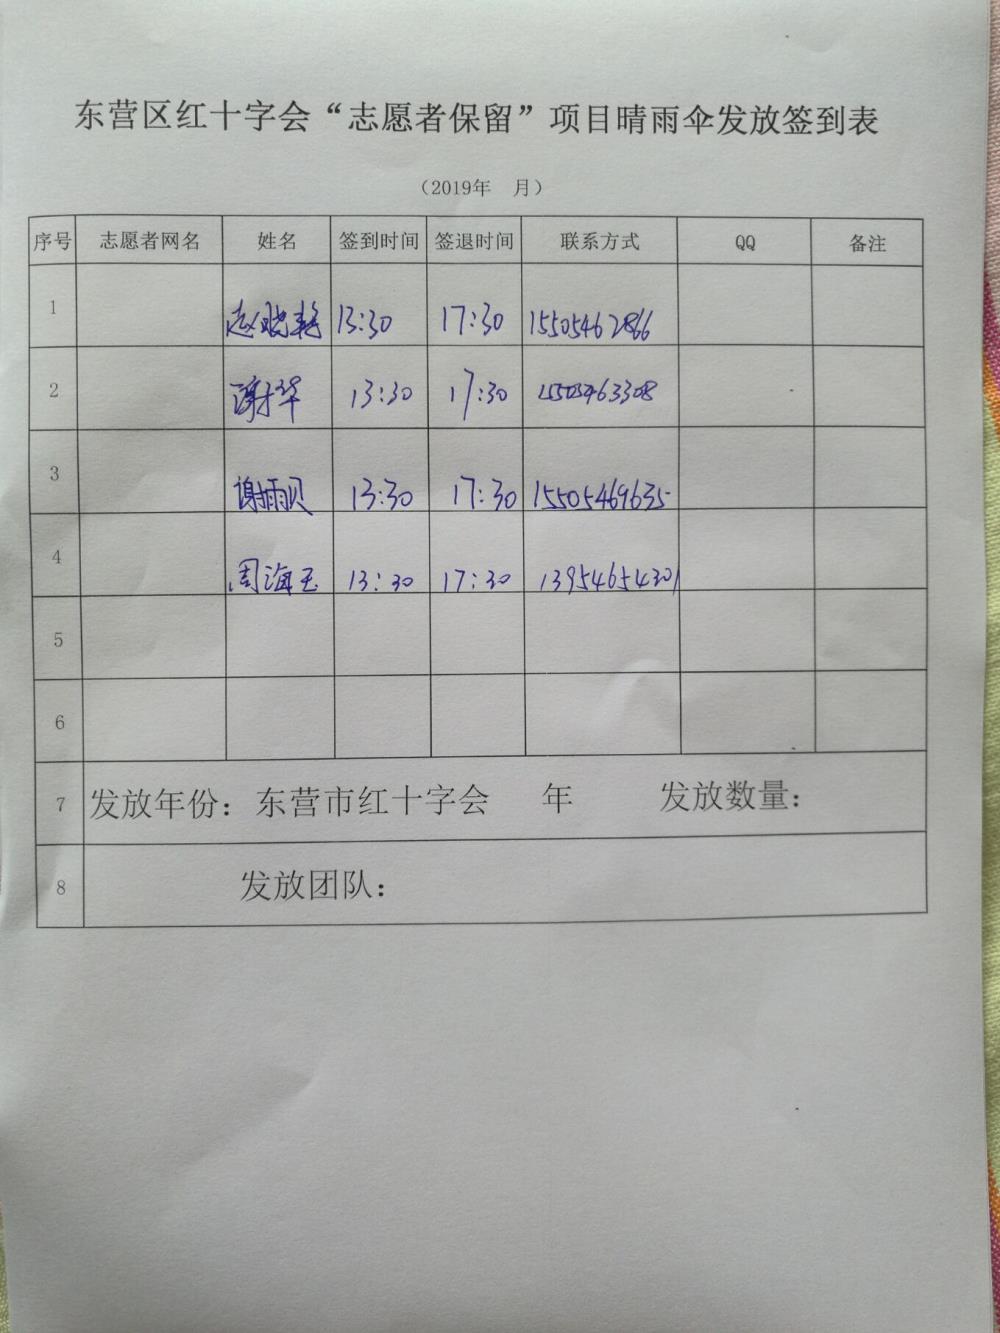 东营区红十字会“志愿者保留”项目晴雨伞发放签到表
（2019年 月）
序号 志愿者网名 姓名 签到时间 签退时间 联系方式 QQ 备注
1 赵晓艳 13:30 17:30 15505462866
2 谢华 13:30 17:30
3 谢雨贝 13:30 17:30 15505469635
4 周海玉 13:30 17:30 13954654301
5
6
7 发放年份：东营市红十字会 年 发放数量：
8 发放团队：